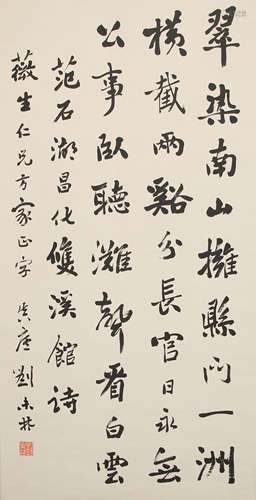 翠染南山擁縣門一洲
橫截兩谿分長官日永無
公事臥聽灘聲看白雲
范石湖昌化雙溪館詩
薇生仁兄方家正字 劉未林